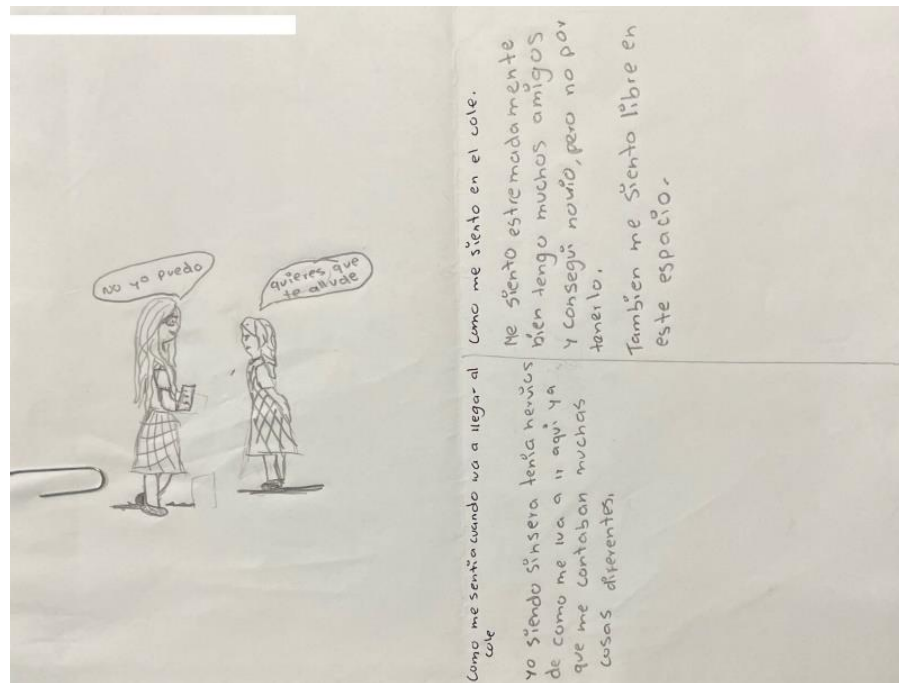 No yo puedo
quieres que
te allude
Como me sentia cuando iva a llegar al
cole
Yo siendo sinsera tenía nervios
de como me iva a ir aquí ya
que me contaban muchas
cosas diferentes.
Como me siento en el cole.
Me siento estremadamente
bien tengo muchos amigos
y conseguí novio, pero no por
tenerlo.
Tambien me siento libre en
este espacio.